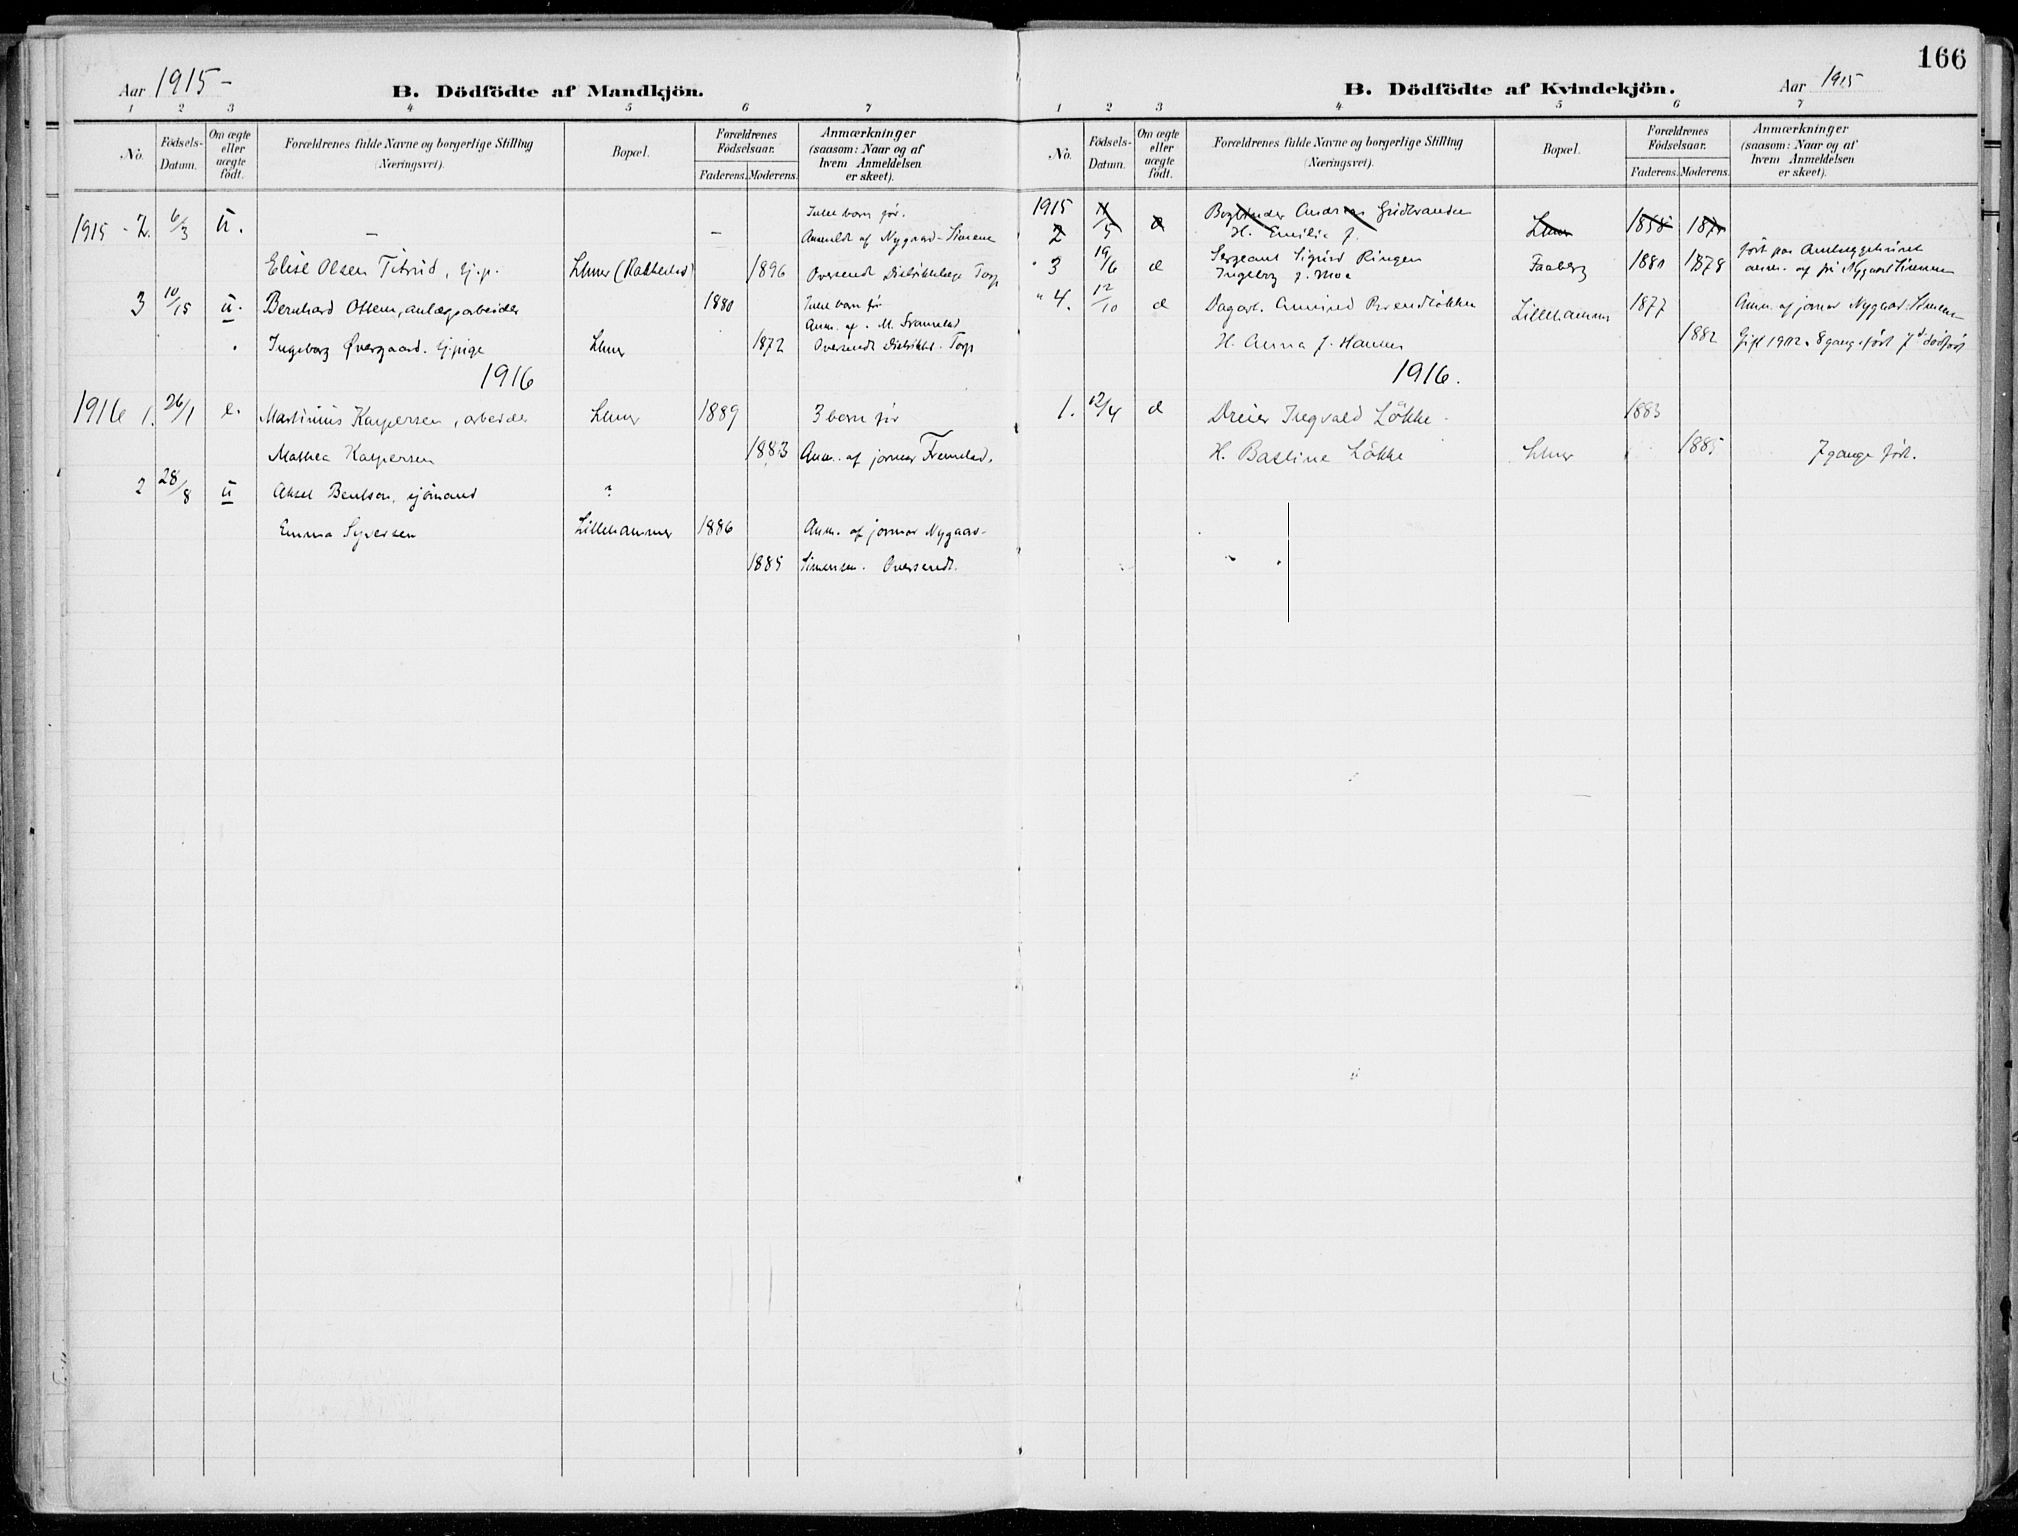 166
Aar 1915 -
B. Dödfödte af Mandkjön.
1 2 3 4 5 6 7
No.
Födsels-Datum.
Om ægte eller uægte födt.
Forældrenes fulde Navne og borgerlige Stilling (Næringsvei).
Bopæl.
Forældrenes Födselsaar.
Faderens. Moderens.
Anmærkninger (saasom: Naar og af hvem Anmeldelsen er skeet).
1915 - 2. 6/3 u. — — børn før.
Anmeldt af Nygaard-Simens
Elise Olsen Titrud, tj.p. Lhmr 1896 Oversendt Distriktslæge Torp
3 10/15 u. Bernhard Olsen, anlægsarbeider 1880 børn før
Anm. af M.
Ingeborg Øvergaard. tj.pige Lhmr 1872 Oversendt Distriktsl. Torp
1916
1916 1. 26/1 e. Martinius Kaspersen, arbeider Lhmr 1889 3 børn før
Mathea Kaspersen 1883 Anm. af jormor Fremstad.
2 28/8 u Aksel Bentsen, sjömand ?
Emma Syversen Lillehammer 1886 Anm. af jormor Nygaar-
1885 Simensen. Oversendt.
B. Dödfödte af Kvindekjön.
Aar 1915
1 2 3 4 5 6 7
No.
Födsels-Datum.
Om ægte eller uægte födt.
Forældrenes fulde Navne og borgerlige Stilling (Næringsvei).
Bopæl.
Forældrenes Födselsaar.
Faderens. Moderens.
Anmærkninger (saasom: Naar og af hvem Anmeldelsen er skeet).
1915 2 11/5 e Bogbinder Andreas Gudbrandsen Lhmr 1858
H. Emilie f.
" 3 19/6 e Sergeant Sigurd Ringen Faaberg 1880 1878 født paa
Ingeborg f. Moe anm. af Nygaard Simensen
" 4. 12/10 e Dagarb. Amund Brendløkken Lillehammer 1877 Anm. af jormor Nygaard-Simensen
H. Anna f. Hammer 1882 Gift 1902. 8 gang født 7 dødfødt
1916.
1. 12/4 e Dreier Ingvald Løkke 1883
H. Bastine Løkke Lhmr 1885 7 gange født.